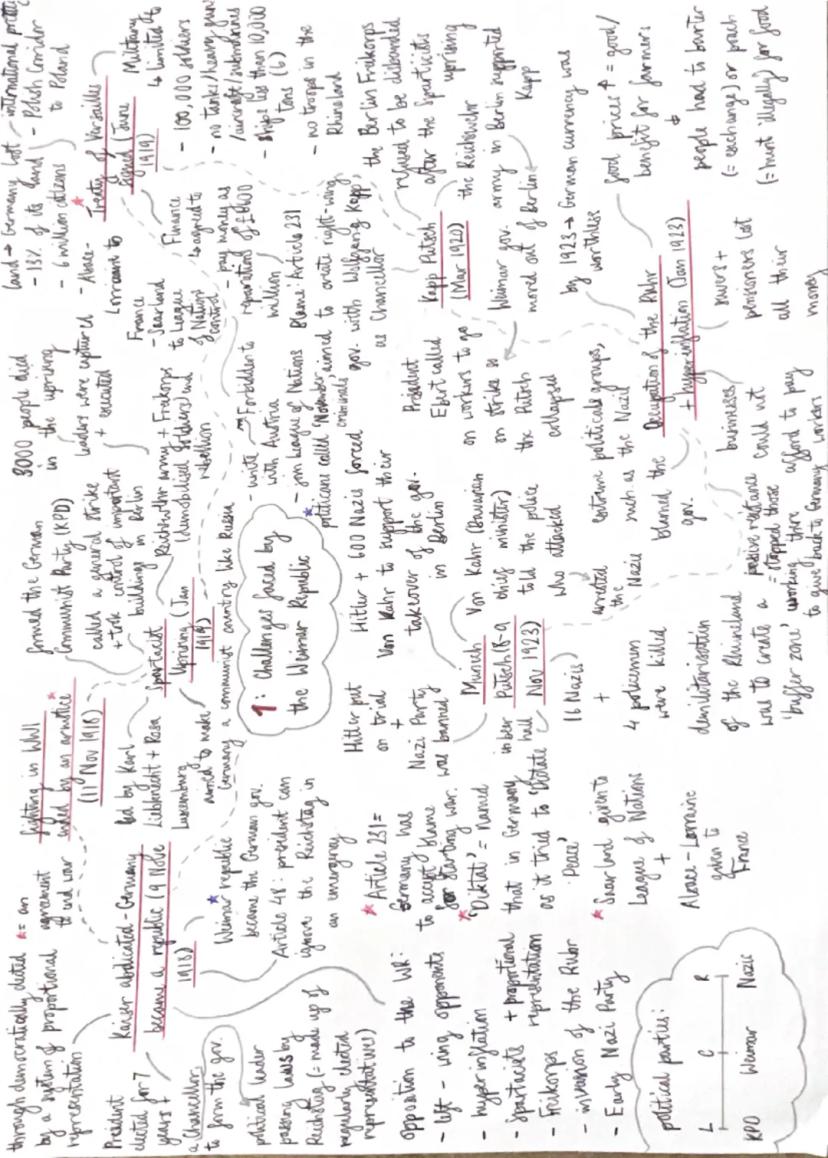 through democratically elected
by a system of proportional
representation
* = an
agreement
to end war
Kaiser abdicated - Germany
became a republic (9 Nov
1918)
President
elected for 7
years +
a Chancellor,
to form the gov.
political leader
passing laws by
Reichstag (= made up of
regularly elected
representatives)
* Weimar republic
became the German gov.
Article 48: president can
ignore the Reichstag in
an emergency
opposition to the WR:
- left-wing opponents
- hyperinflation
- Spartacists
+ proportional
representation
- Freikorps
- invasion of the Ruhr
- Early Nazi Party
political parties:
L C R
KPD Weimar Nazis
* Article 231 =
Germany has
to accept blame
for starting war.
* 'Diktat' = Named
that in Germany
as it tried to 'Dictate
Peace'
* Saarland given to
League of Nations
+
Alsace-Lorraine
given to
France
fighting in WWI
ended by an armistice *
(11th Nov 1918)
formed the German
Communist Party (KPD)
called a general strike
+ took control of important
buildings in Berlin
3000 people died
in the uprising
leaders were captured
+ executed
led by Karl
Liebknecht + Rosa
Luxemburg
Spartacist
Uprising (Jan
1919)
Reichswehr army + Freikorps
(demobilised soldiers) end
rebellion
aimed to make
Germany a communist country like Russia
1: Challenges faced by
the Weimar Republic
land → Germany lost
- 13% of its land
- 6 million citizens
- Polish Corridor
to Poland
- Alsace-
Lorraine to
France
- Saarland
to League
of Nations
control
* Treaty of Versailles
signed (June
1919)
Military
↳ limited to
- 100,000 soldiers
- no tanks/heavy guns
/aircraft/submarines
- ships less than 10,000
tons (6)
- no troops in the
Rhineland
Finance
↳ agreed to
- pay money as
reparations of £6600
million
Blame: Article 231
- Forbidden to
unite
with Austria
- join League of Nations
* politicians called 'November
criminals'
aimed to create right-wing
gov. with Wolfgang Kapp
as Chancellor
Kapp Putsch
(Mar 1920)
the Berlin Freikorps
refused to be disbanded
after the Sparticists
uprising
the Reichswehr
army in Berlin supported
Kapp
Weimar gov.
moved out of Berlin
President
Ebert called
on workers to go
on strike so
the Putsch
collapsed
Hitler + 600 Nazis forced
Von Kahr to support their
takeover of the gov.
in Berlin
Hitler put
on trial
+
Nazi Party
was banned
Munich
Putsch (8-9
Nov 1923)
in beer
hall
Von Kahr (Bavarian
chief minister)
told the police
who attacked
+
arrested
the Nazis
16 Nazis
+
4 policemen
were killed
Occupation of the Ruhr
+ hyperinflation (Jan 1923)
by 1923 → German currency was
worthless
food prices ↑ = good/
benefit for farmers
&
people had to barter
(= exchange) or poach
(= hunt illegally) for food
savers +
pensioners lost
all their
money
extreme political groups,
such as the Nazis
blamed the
gov.
businesses
could not
afford to pay
workers
demilitarisation
of the Rhineland
was to create a
'buffer zone'
passive resistance
= stopped those
working there
to give back to Germany